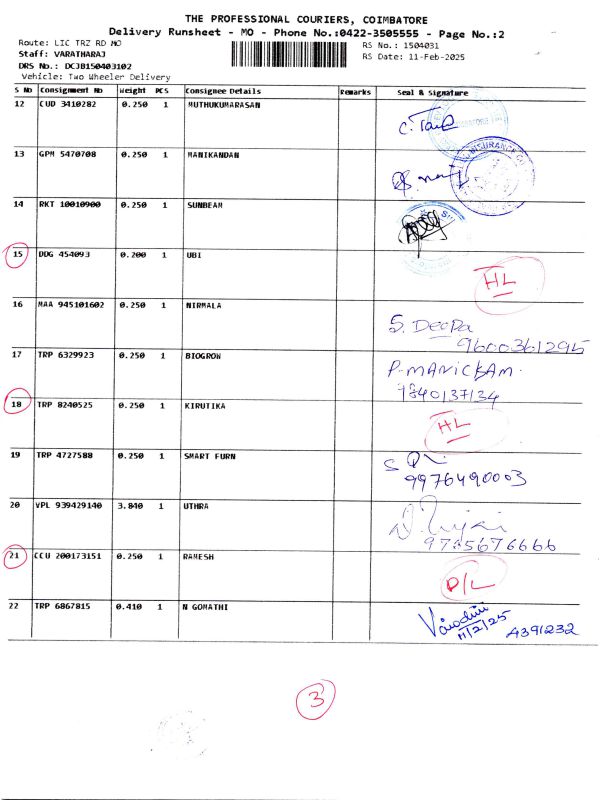 THE PROFESSIONAL COURIERS, COIMBATORE
Delivery Runsheet - MO - Phone No.:0422-3505555 - Page No.:2
Route: LIC TRZ RD MO
RS No.: 1504031
Staff: VARATHARAJ
RS Date: 11-Feb-2025
DRS No.: DCJB150403102
Vehicle: Two Wheeler Delivery
S No Consignment No Weight PCS Consignee Details Remarks Seal & Signature
12 CUD 3410282 0.250 1 MUTHUKUMARASAN
13 GPM 5470708 0.250 1 MANIKANDAN
14 RKT 10010900 0.250 1 SUNBEAM
15 DDG 454093 0.200 1 UBI HL
16 MAA 945101602 0.250 1 NIRMALA S. Deepa
9600361295
17 TRP 6329923 0.250 1 BIOGROW P. MANICKAM.
9840137134
18 TRP 8240525 0.250 1 KIRUTIKA HL
19 TRP 4727588 0.250 1 SMART FURN
9976490003
20 VPL 939429140 3.840 1 UTHRA
9785676666
21 CCU 200173151 0.250 1 RAMESH D/L
22 TRP 6867815 0.410 1 N GOMATHI
11/2/25 A391232
3